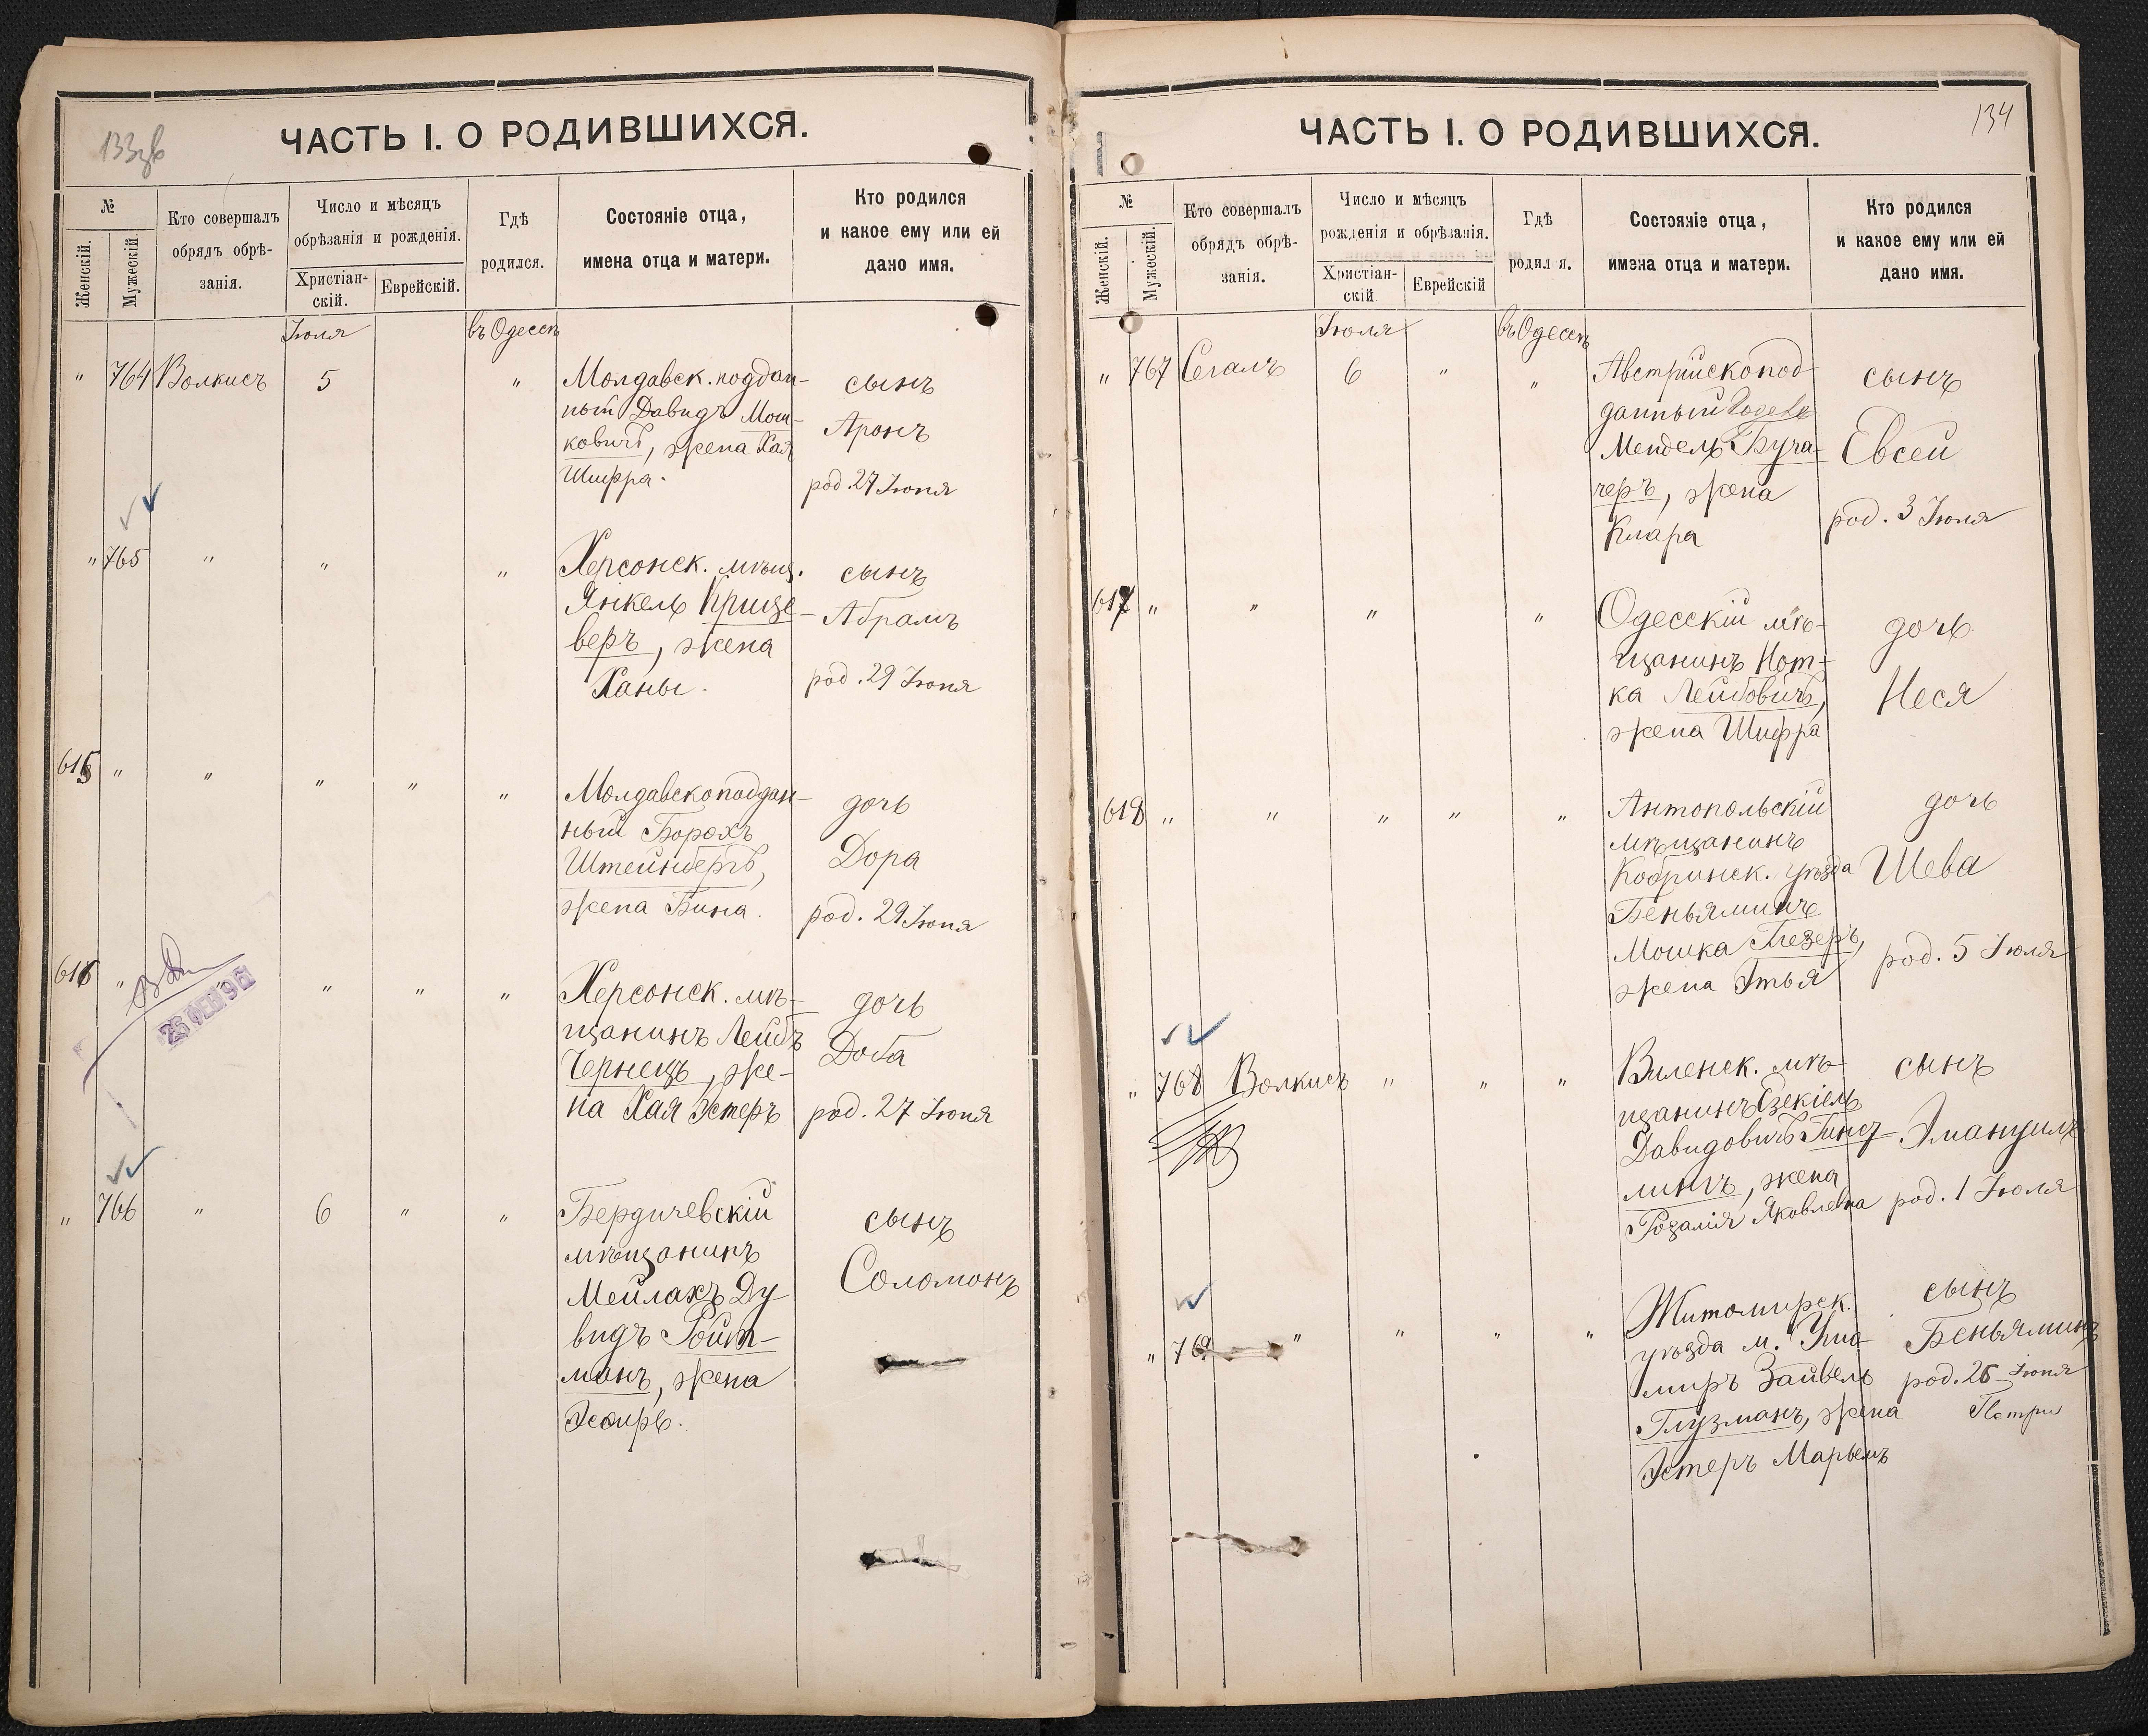 133зв
ЧАСТЬ I. О РОДИВШИХСЯ.
№
Женскій.
Мужескій.
Кто совершалъ
обрядъ обрѣ-
занія.
Число и мѣсяцъ
обрѣзанія и рожденія.
Христіан-
скій.
Еврейскій.
Гдѣ
родился.
Состояніе отца,
имена отца и матери.
Кто родился
и какое ему или ей
дано имя.
Іюля
въ Одессѣ
" 764 Волкисъ 5 "
Молдавск. поддан-
ный Давидъ Мош-
ковичъ, жена Хая
Шифра.
сынъ
Аронъ
род. 27 Іюня
" 765 " " "
Херсонск. мѣщ.
Янкель Крице-
веръ, жена
Ханы.
сынъ
Абрамъ
род. 29 Іюня
615 " " " " "
Молдавскоподдан-
ный Борохъ
Штейнбергъ,
жена Бина.
дочь
Дора
род. 29 Іюня
616 " " " "
26 ФЕВ 96
Херсонск. мѣ-
щанинъ Лейбъ
Чернецъ, же-
на Хая Эстеръ
дочь
Доба
род. 27 Іюня
" 766 " 6 " "
Бердичевскій
мѣщанинъ
Мейлахъ Ду-
видъ Ройт-
манъ, жена
Эсфирь.
сынъ
Соломонъ
134
ЧАСТЬ I. О РОДИВШИХСЯ.
№
Женскій.
Мужескій.
Кто совершалъ
обрядъ обрѣ-
занія.
Число и мѣсяцъ
рожденія и обрѣзанія.
Христіан-
скій
Еврейскій
Гдѣ
родил я.
Состояніе отца,
имена отца и матери.
Кто родился
и какое ему или ей
дано имя.
Іюля
въ Одессѣ
" 767 Сегалъ 6 " "
Австрійскопод-
данный
Мендель Буча-
черъ, жена
Клара
сынъ
Евсей
род. 3 Іюля
617 " " " "
Одесскій мѣ-
щанинъ Нот-
ка Лейбовичъ,
жена Шифра
дочь
Неся
618 " " " " "
Антопольскій
мѣщанинъ
Кобринск. уѣзда
Беньяминъ
Мошка Глезеръ,
жена Этья
дочь
Шева
род. 5 Іюля
" 768 Волкисъ " " "
Виленск. мѣ-
щанинъ Езекіель
Давидовичъ Гинз-
лингъ, жена
Розалія Яковлевна
сынъ
Эмануилъ
род. 1 Іюля
" 769 " " " "
Житомирск.
уѣзда м. Уша-
миръ Зайвель
Глузманъ, жена
Эстеръ Марьемъ
сынъ
Беньяминъ
род. 26 Іюня